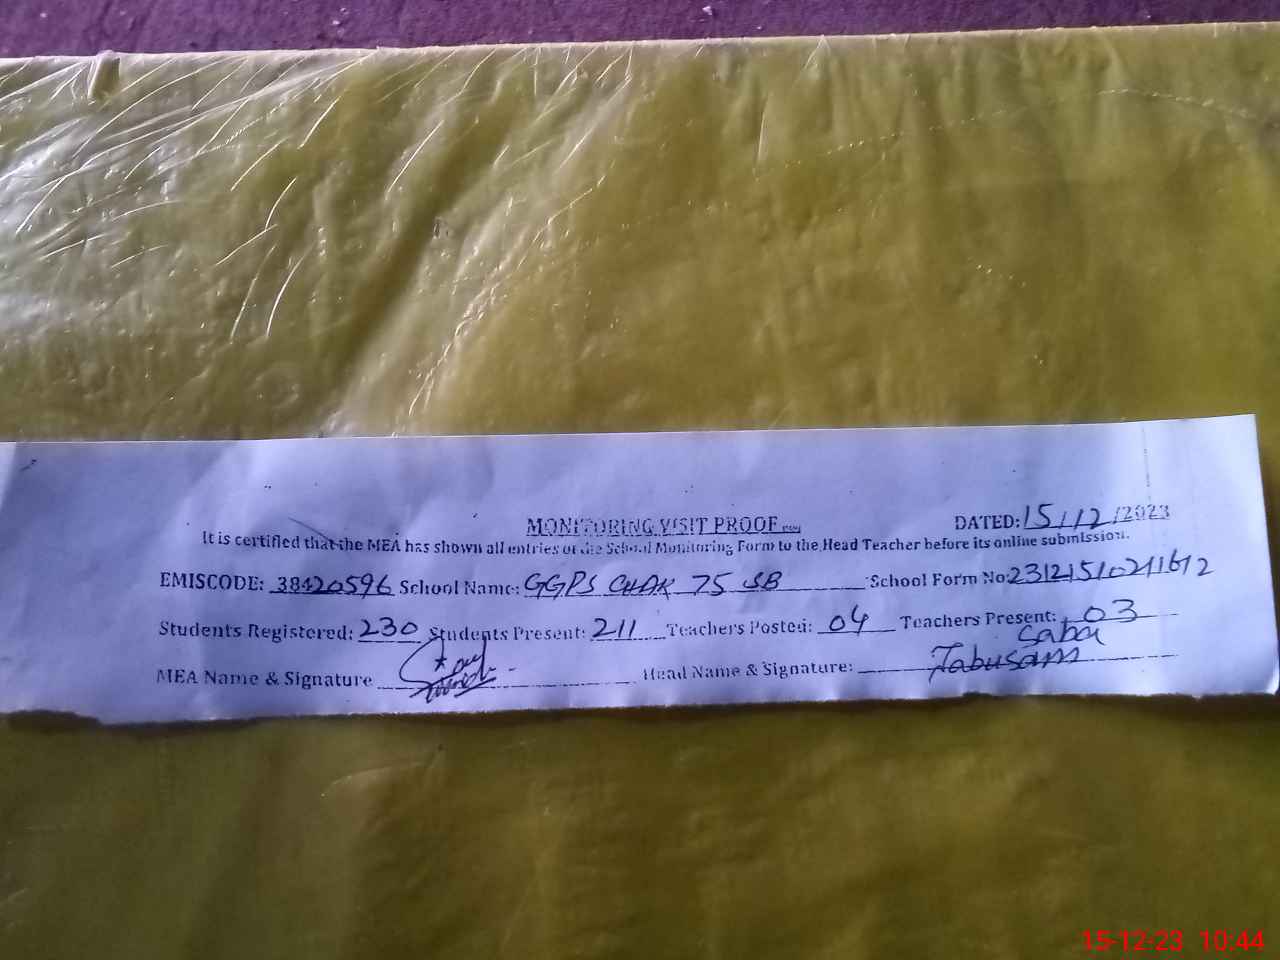 MONITORING VISIT PROOF
DATED: 15/12/2023
It is certified that the MEA has shown all entries of the School Monitoring Form to the Head Teacher before its online submission.
EMISCODE: 38420596 School Name: GGPS CHAK 75 SB School Form No: 23121510211612
Students Registered: 230 Students Present: 211 Teachers Posted: 04 Teachers Present: 03
MEA Name & Signature Head Name & Signature: Saba Tabusam
15-12-23 10:44